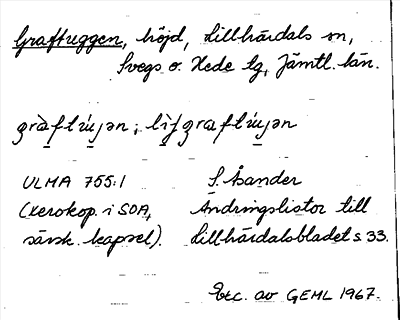 Graftuggen, höjd, Lillhärdals sn,
Svegs o. Hede tg, Jämtl. län.
ULMA 755:1
(xerokop. i SOA,
särsk. kapsel).
S. Åsander
Ändringslistor till
Lillhärdalsbladet s. 33.
Exc. av GEML 1967.